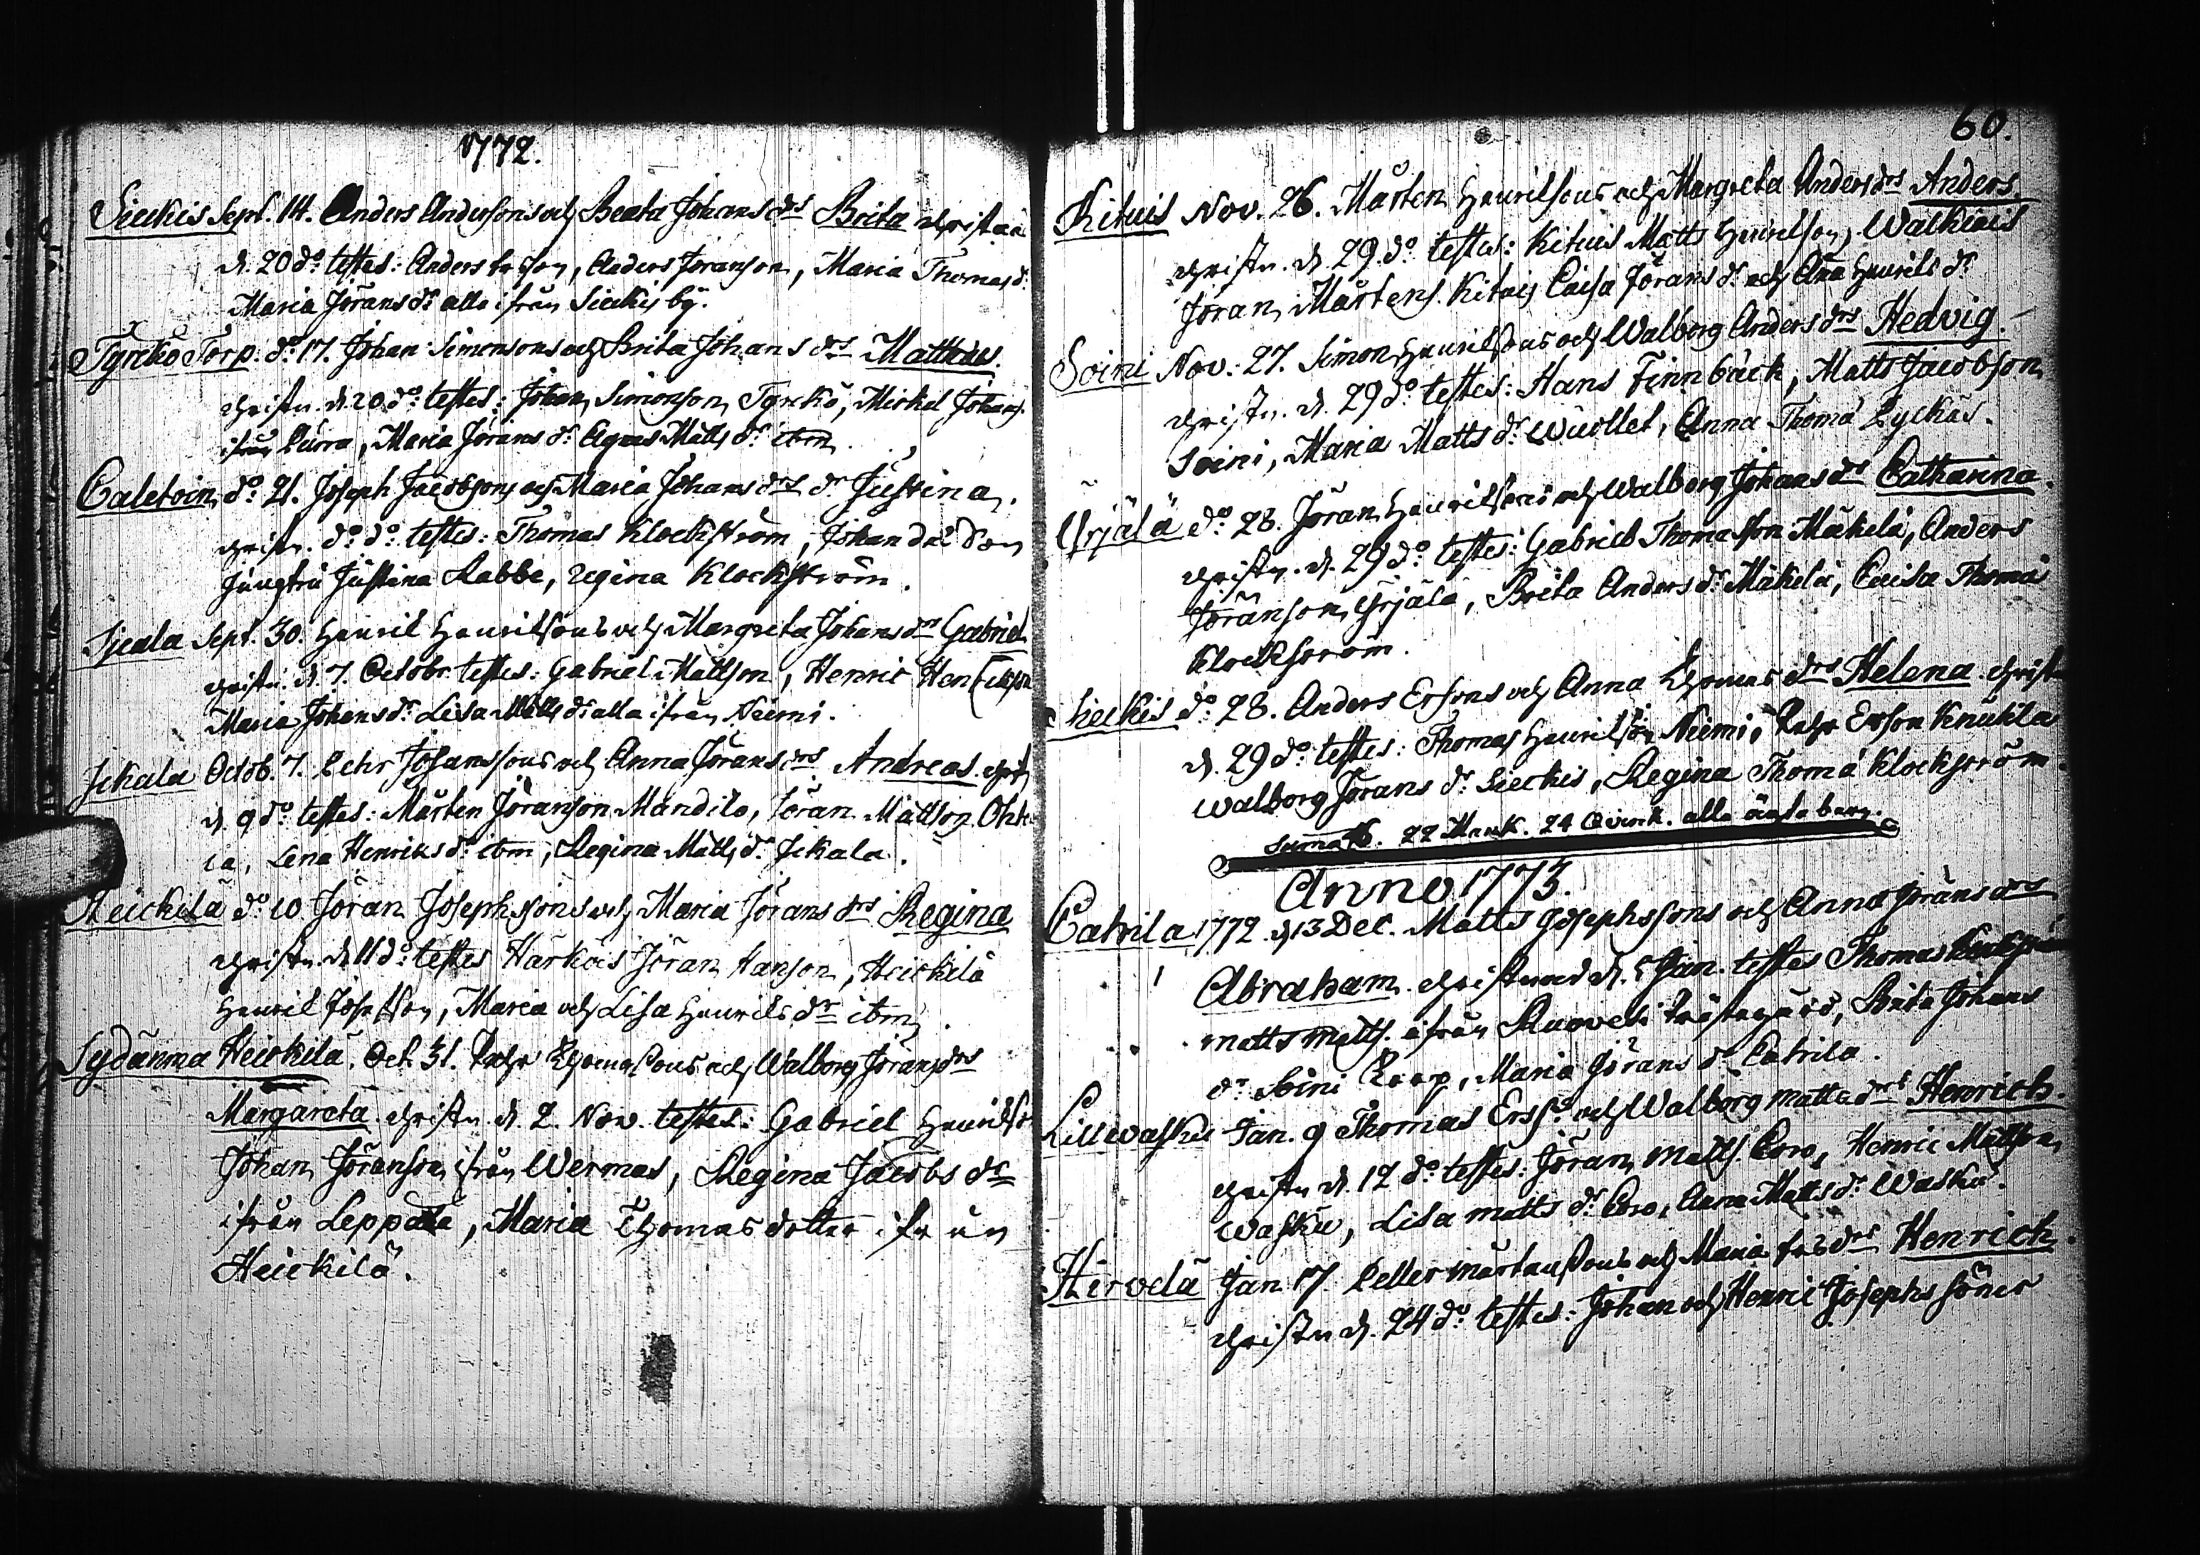 1772.
Sieckis Sept. 14. Anders Andersons och Beata Johans drs Brita christn
d. 20 do testes: Anders Erson, Anders Joranson, Maria Thomas d.
Maria Jörans dr alla ifrån Sieckis by.
Tyrckö Torp. do 17. Johan Simonsons och Brita Johans drs Mattheus.
christn. d. 20. do testes: Johan Simonson Tyrckö, Michel Johans.
ifrån Purra, Maria Jörans dr Agnes Matts dr ibm
Caletoin do 21. Joseph Jacobsons och Maria Johans drs dr Justina.
christn. do do testes: Thomas Klockström, Johan
Jungfru Justina Rabbe, Regina Klockström.
Sjeala Sept. 30. Henric Henricsons och Margreta Johans drs Gabriel
christn. d. 7. Octobr. testes: Gabriel Mattson, Henric Henricson
Maria Johans dr Lisa Matts dr alla ifrån Niemi.
Jckala Octob. 7. Pehr Johanssons och Anna Jörans drs Andreas. christn
d. 9 do testes: Mårten Jöranson Mandilo, Jöran Mattson Ohk
la, Lena Henriks dr ibm, Regina Matts dr Jckala.
Heickilä do 10 Jöran Josephssons och Maria Jörans drs Regina
christn. d. 11 do testes Härköis Jöran Hanson, Heickilä
Henric Josephson, Maria och Lisa Henrics dr ibm
Sydänma Heickilä. Oct. 31. Pehr Thomassons och Walborg Jörans drs
Margareta christn d. 2. Nov. testes: Gabriel Henricson
Johan Jöranson ifrån Wermas, Regina Jacobs dr
ifrån Leppala, Maria Thomas dotter ifrån
Heickilä.
60.
Kituis Nov. 26. Mårten Henricsons och Margreta Anders drs Anders.
christn. d. 29. do testes: Kituis Matts Henricson, Walkiais
Jöran Mårtens. Kituis Caisa Jörans dr och Ana Henrics dr
Soini Nov. 27. Simon Henricsons och Walborg Anders drs Hedvig.
christn. d. 29 do testes: Hans Finnbäck, Matts Jacobson
Soini, Maria Matts dr Wuollet, Anna Thoma Lyckäs.
Yrjälä do 28. Jöran Henricsons och Walborg Johans dr Catharina.
christn. d. 29 do testes: Gabriel Thomasson Mäkelä, Anders
Jöranson Yrjälä, Brita Anders dr Mäkelä, Caisa Thoma
Klockström.
Sieckis do 28. Anders Ersons och Anna Thomas drs Helena. christn
d. 29 do testes: Thomas Henricson Niemi, Pehr Erson Knuktla
Walborg Jörans dr Sieckis, Regina Thoma Klockström.
Suma 46. 22 Mank. 24 Qvink. alla ägta barn.
Anno 1773.
Catrila 1772 d. 13 Dec. Matts Josephssons och Anna Jörans drs
1 Abraham christnad d. Jan. testes Thomas
Matts Matts. ifrån Ruovesi Prästegård, Brita Johans
dr Soini Torp, Maria Jörans dr Catrila.
Lillwasku Jan. 9 Thomas Erss. och Walborg Matts drs Henrich.
christn d. 12 do testes: Jöran Matts. Coro, Henric Mattson
Wasku, Lisa Matts dr Coro, Anna Matts dr Wasku.
Hirvelä Jan. 17. Petter Mårtenssons och Maria drs Henrich.
christn d. 24 do testes: Johan och Henric Josephs söner